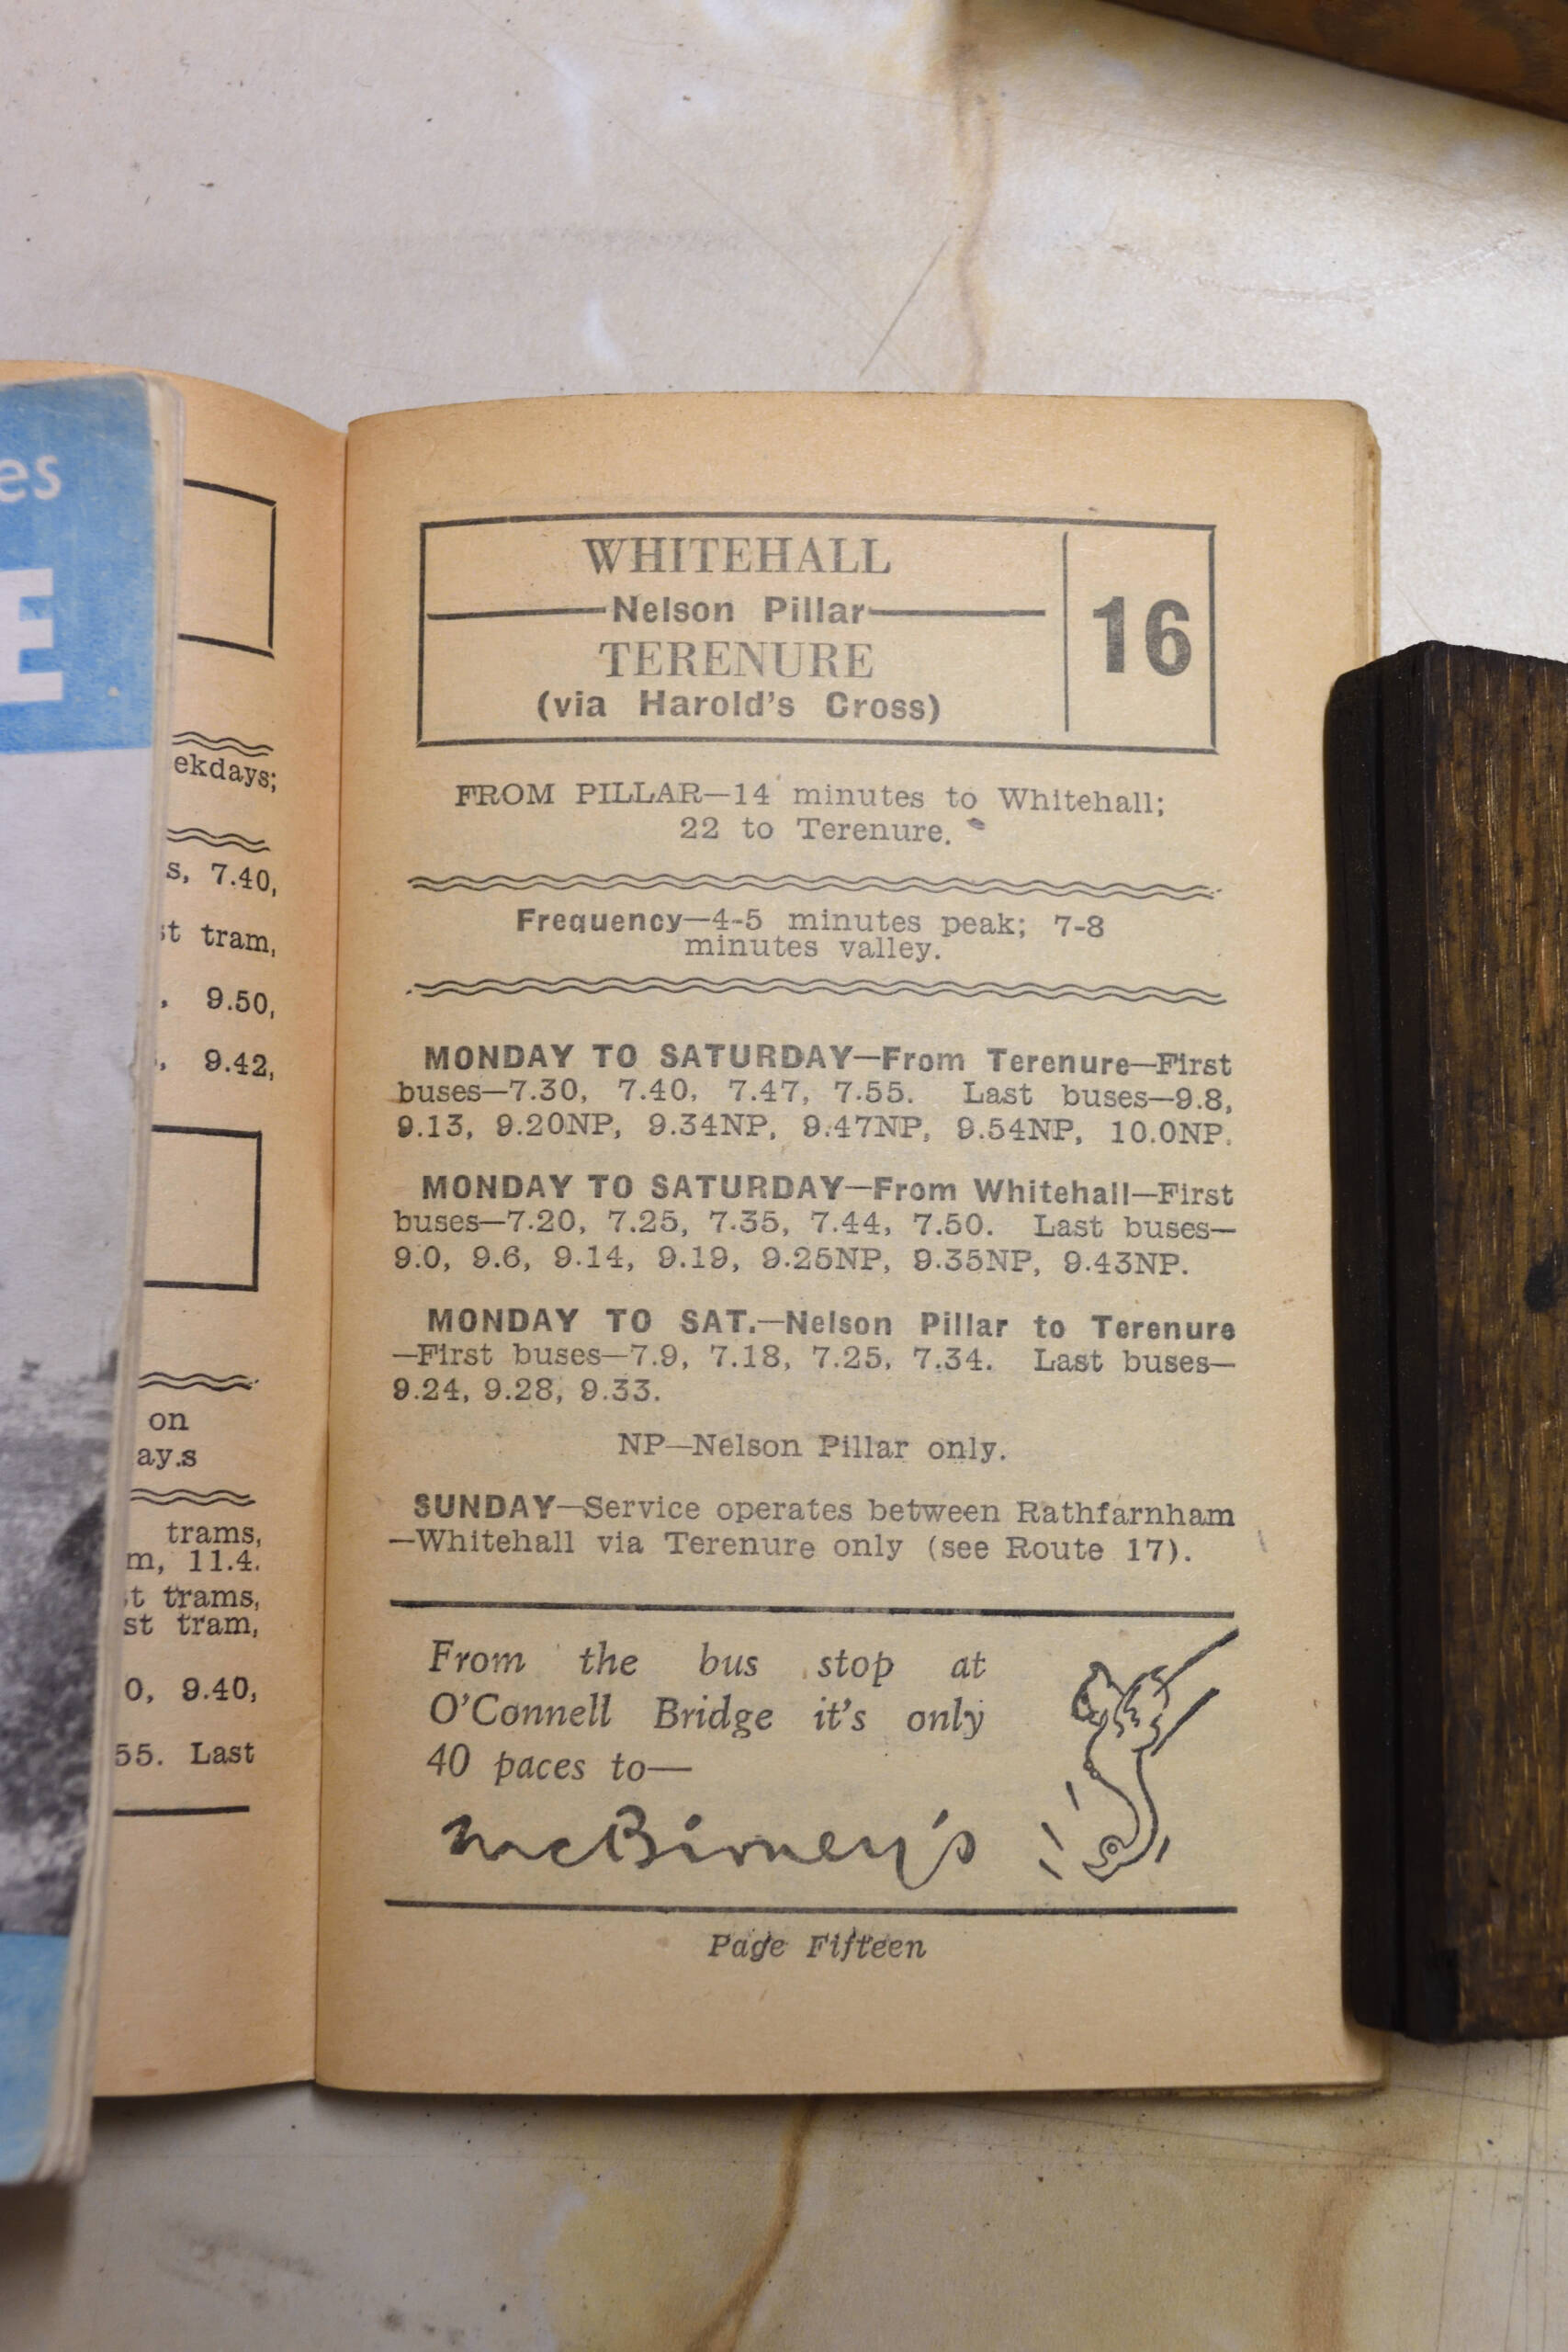 es
E
ekdays;
s, 7.40,
st tram,
, 9.50,
, 9.42,
on
ay.s
trams,
m, 11.4.
st trams,
st tram,
0, 9.40,
55. Last
WHITEHALL
—Nelson Pillar—
TERENURE
(via Harold's Cross)
16
FROM PILLAR—14 minutes to Whitehall;
22 to Terenure.
Frequency—4-5 minutes peak; 7-8
minutes valley.
MONDAY TO SATURDAY—From Terenure—First
buses—7.30, 7.40, 7.47, 7.55. Last buses—9.8,
9.13, 9.20NP, 9.34NP, 9.47NP, 9.54NP, 10.0NP.
MONDAY TO SATURDAY—From Whitehall—First
buses—7.20, 7.25, 7.35, 7.44, 7.50. Last buses—
9.0, 9.6, 9.14, 9.19, 9.25NP, 9.35NP, 9.43NP.
MONDAY TO SAT.—Nelson Pillar to Terenure
—First buses—7.9, 7.18, 7.25, 7.34. Last buses—
9.24, 9.28, 9.33.
NP—Nelson Pillar only.
SUNDAY—Service operates between Rathfarnham
—Whitehall via Terenure only (see Route 17).
From the bus stop at
O'Connell Bridge it's only
40 paces to—
McBirney's
Page Fifteen